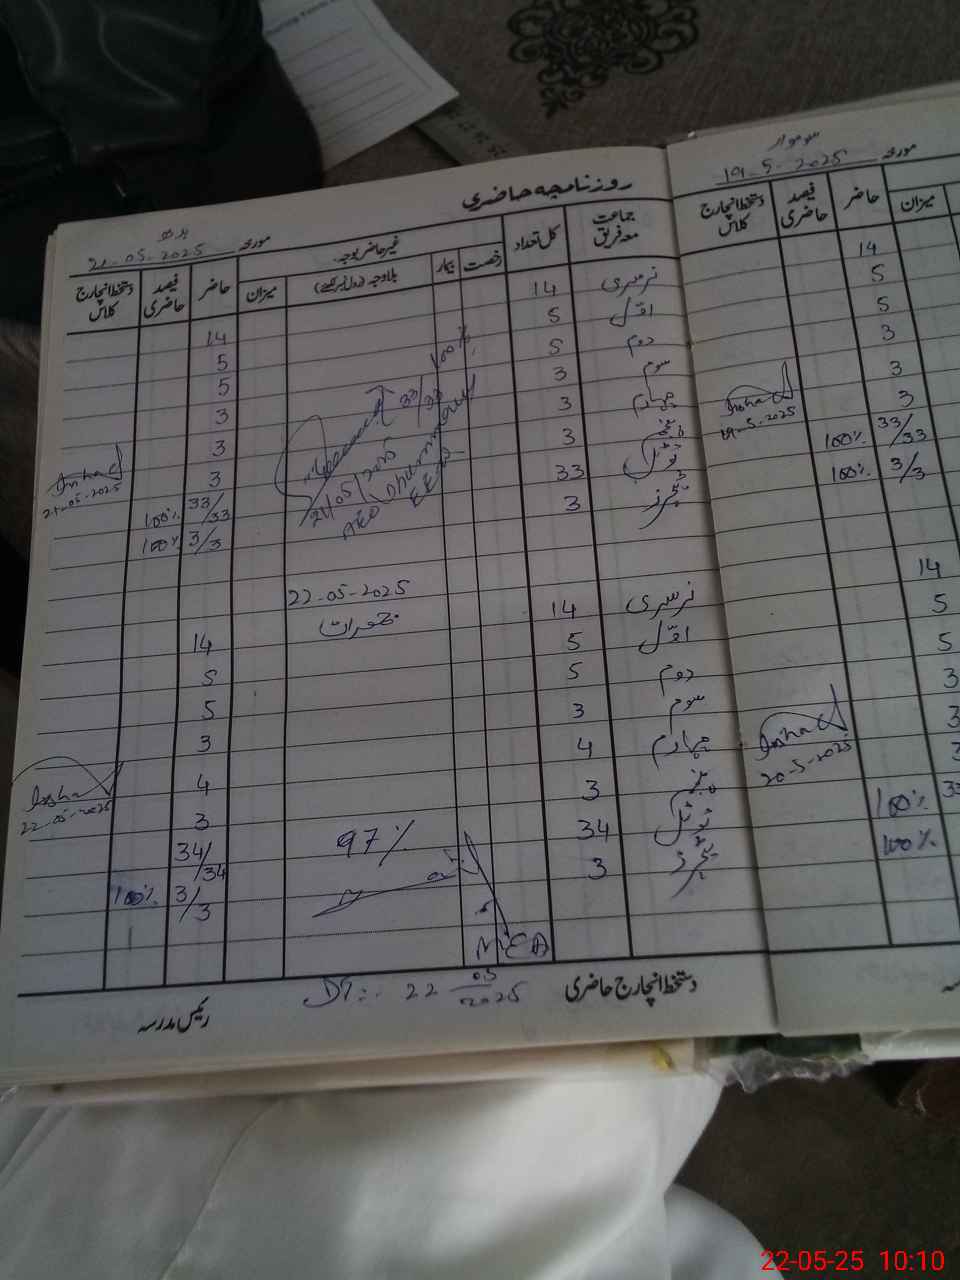 روزنامچہ حاضری
بدھ
مورخہ 21-05-2025
جماعت معہ فریق کل تعداد غیر حاضر بوجہ حاضر فیصد حاضری دستخط انچارج کلاس
رخصت بیمار بلاوجہ (رول نمبر لکھیے) میزان
نرسری 14 14
اوّل 5 5
دوم 5 5
سوم 3 3
چہارم 3 3
پنجم 3 3
ٹوٹل 33 33/33 100%
ٹیچرز 3 3/3 100%
21-05-2025
33/33 100%
21/05/2025
22-05-2025
جمعرات
نرسری 14 14
اوّل 5 5
دوم 5 5
سوم 3 3
چہارم 4 4
پنجم 3 3
ٹوٹل 34 34/34
ٹیچرز 3 3/3 100%
22-05-2025
97%
MEA
DT:. 22 05 2025
دستخط انچارج حاضری
رئیس مدرسہ
سوموار
مورخہ 19-5-2025
میزان حاضر فیصد حاضری دستخط انچارج کلاس
14
5
5
3
3
3
33/33 100%
3/3 100%
19-5-2025
14
5
5
3
3
3
33 100%
100%
20-5-2025
22-05-25 10:10